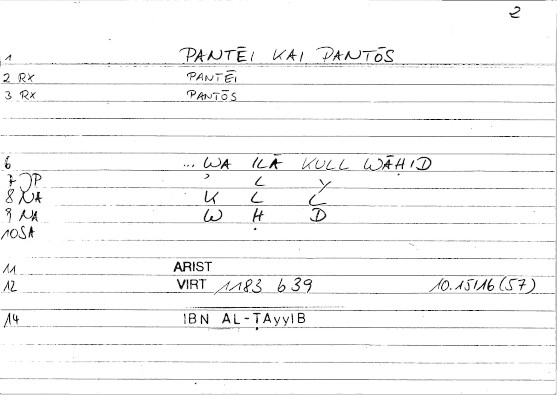 2
1 PANTĒI KAI PANTŌS
2 RX PANTĒI
3 RX PANTŌS
6 ... WA ILĀ KULL WĀḤID
7 JP ʾ L Y
8 NA K L L
9 NA W Ḥ D
10 SA
11 ARIST
12 VIRT 1183 b 39 10.15/16 (57)
14 IBN AL-ṬAyyIB